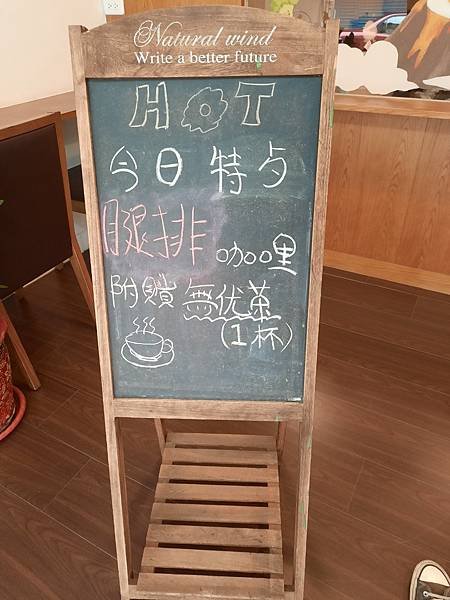 Natural wind
Write a better future
HOT
今日特夕
腿排咖哩
附贈無优茶
(1杯)